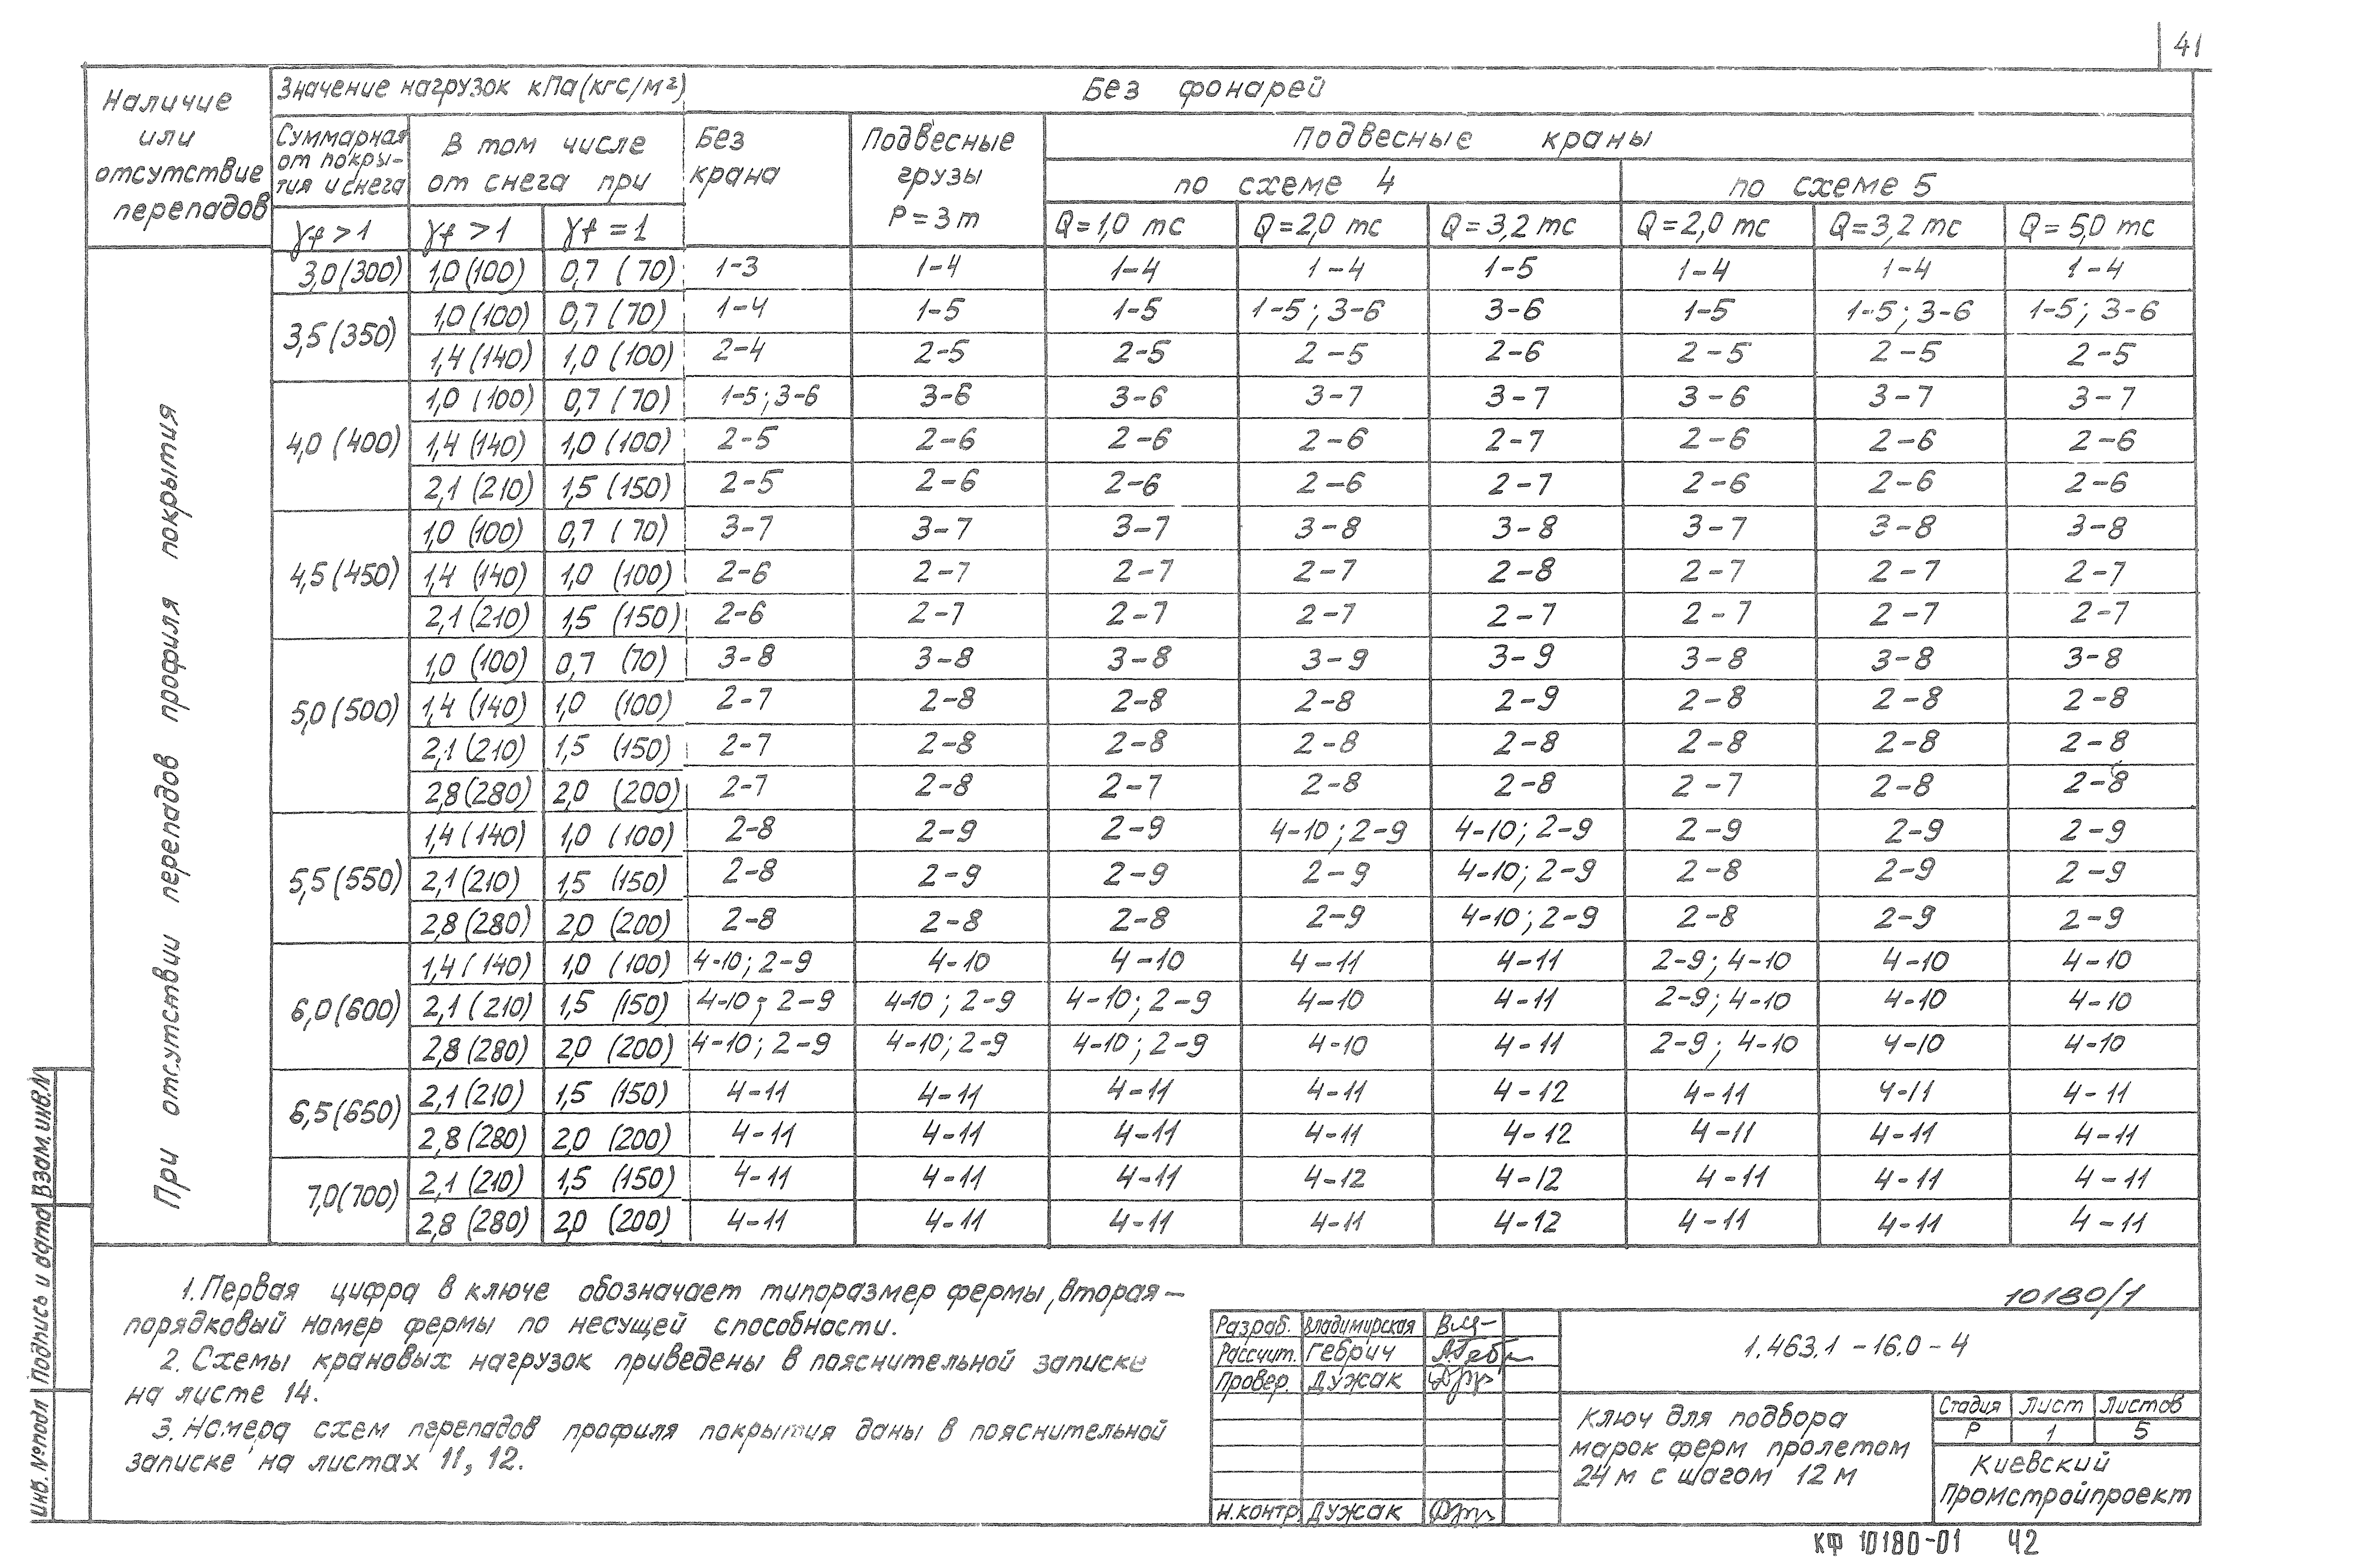 41
Наличие или отсутствие перепадов
Значение нагрузок кПа (кгс/м²)
Без фонарей
Суммарная от покры- тия и снега
В том числе от снега при
Без крана
Подвесные грузы P = 3 т
Подвесные краны
по схеме 4
по схеме 5
γf > 1 γf > 1 γf = 1
Q = 1,0 тс Q = 2,0 тс Q = 3,2 тс Q = 2,0 тс Q = 3,2 тс Q = 5,0 тс
При отсутствии перепадов профиля покрытия
3,0 (300) 1,0 (100) 0,7 (70) 1-3 1-4 1-4 1-4 1-5 1-4 1-4 1-4
3,5 (350) 1,0 (100) 0,7 (70) 1-4 1-5 1-5 1-5; 3-6 3-6 1-5 1-5; 3-6 1-5; 3-6
1,4 (140) 1,0 (100) 2-4 2-5 2-5 2-5 2-6 2-5 2-5 2-5
4,0 (400) 1,0 (100) 0,7 (70) 1-5; 3-6 3-6 3-6 3-7 3-7 3-6 3-7 3-7
1,4 (140) 1,0 (100) 2-5 2-6 2-6 2-6 2-7 2-6 2-6 2-6
2,1 (210) 1,5 (150) 2-5 2-6 2-6 2-6 2-7 2-6 2-6 2-6
4,5 (450) 1,0 (100) 0,7 (70) 3-7 3-7 3-7 3-8 3-8 3-7 3-8 3-8
1,4 (140) 1,0 (100) 2-6 2-7 2-7 2-7 2-8 2-7 2-7 2-7
2,1 (210) 1,5 (150) 2-6 2-7 2-7 2-7 2-7 2-7 2-7 2-7
5,0 (500) 1,0 (100) 0,7 (70) 3-8 3-8 3-8 3-9 3-9 3-8 3-8 3-8
1,4 (140) 1,0 (100) 2-7 2-8 2-8 2-8 2-9 2-8 2-8 2-8
2,1 (210) 1,5 (150) 2-7 2-8 2-8 2-8 2-8 2-8 2-8 2-8
2,8 (280) 2,0 (200) 2-7 2-8 2-7 2-8 2-8 2-7 2-8 2-8
5,5 (550) 1,4 (140) 1,0 (100) 2-8 2-9 2-9 4-10; 2-9 4-10; 2-9 2-9 2-9 2-9
2,1 (210) 1,5 (150) 2-8 2-9 2-9 2-9 4-10; 2-9 2-8 2-9 2-9
2,8 (280) 2,0 (200) 2-8 2-8 2-8 2-9 4-10; 2-9 2-8 2-9 2-9
6,0 (600) 1,4 (140) 1,0 (100) 4-10; 2-9 4-10 4-10 4-11 4-11 2-9; 4-10 4-10 4-10
2,1 (210) 1,5 (150) 4-10; 2-9 4-10; 2-9 4-10; 2-9 4-10 4-11 2-9; 4-10 4-10 4-10
2,8 (280) 2,0 (200) 4-10; 2-9 4-10; 2-9 4-10; 2-9 4-10 4-11 2-9; 4-10 4-10 4-10
6,5 (650) 2,1 (210) 1,5 (150) 4-11 4-11 4-11 4-11 4-12 4-11 4-11 4-11
2,8 (280) 2,0 (200) 4-11 4-11 4-11 4-11 4-12 4-11 4-11 4-11
7,0 (700) 2,1 (210) 1,5 (150) 4-11 4-11 4-11 4-12 4-12 4-11 4-11 4-11
2,8 (280) 2,0 (200) 4-11 4-11 4-11 4-11 4-12 4-11 4-11 4-11
1. Первая цифра в ключе обозначает типоразмер фермы, вторая –
порядковый номер фермы по несущей способности.
2. Схемы крановых нагрузок приведены в пояснительной записке
на листе 14.
3. Номера схем перепадов профиля покрытия даны в пояснительной
записке на листах 11, 12.
10180/1
Разраб. Владимирская
Рассчит. Гебрич
Провер. Дужак
Н. контр. Дужак
1.463.1 - 16.0 - 4
Ключ для подбора
марок ферм пролетом
24 м с шагом 12 м
Стадия Лист Листов
Р 1 5
Киевский
Промстройпроект
Инв. № подл Подпись и дата Взам. инв. N
КФ 10180-01 42